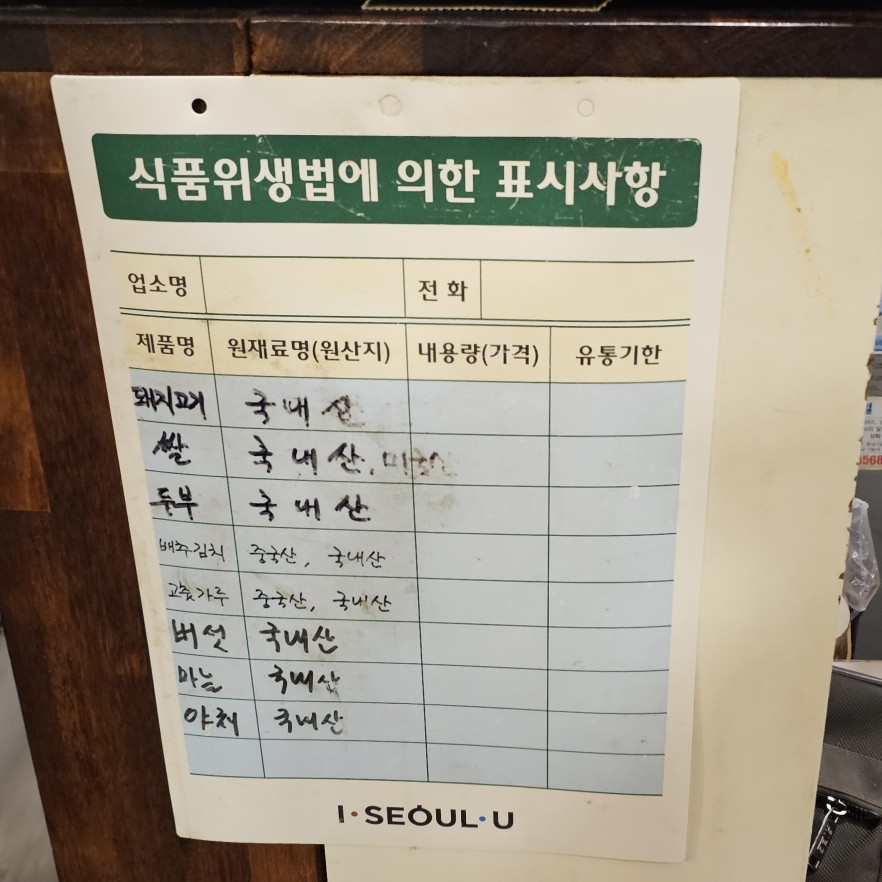 식품위생법에 의한 표시사항
업소명 전화
제품명 원재료명(원산지) 내용량(가격) 유통기한
돼지고기 국내산
쌀 국내산, 미국산
두부 국내산
배추김치 중국산, 국내산
고춧가루 중국산, 국내산
버섯 국내산
마늘 국내산
야채 국내산
I·SEOUL·U
568